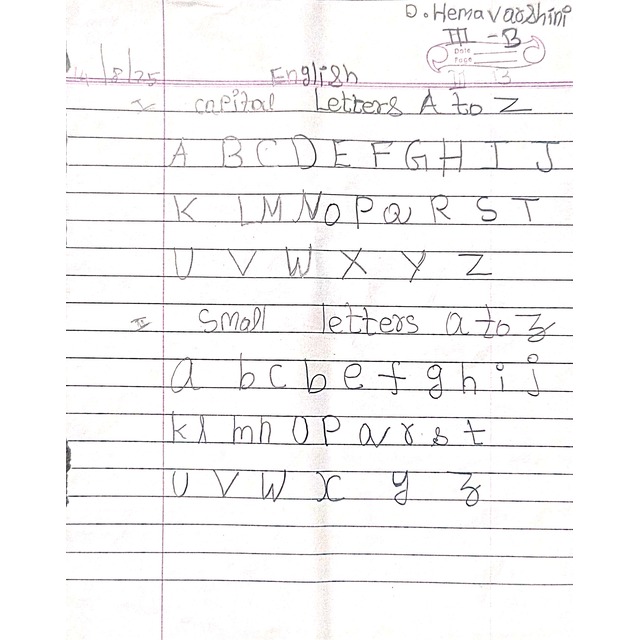 D. Hemavarshini
III - B
Date
Page
III B
14/8/25
English
I capital letters A to Z
A B C D E F G H I J
K L M N O P Q R S T
U V W X Y Z
II Small letters a to z
a b c b e f g h i j
k l m n o p q r s t
u v w x y z